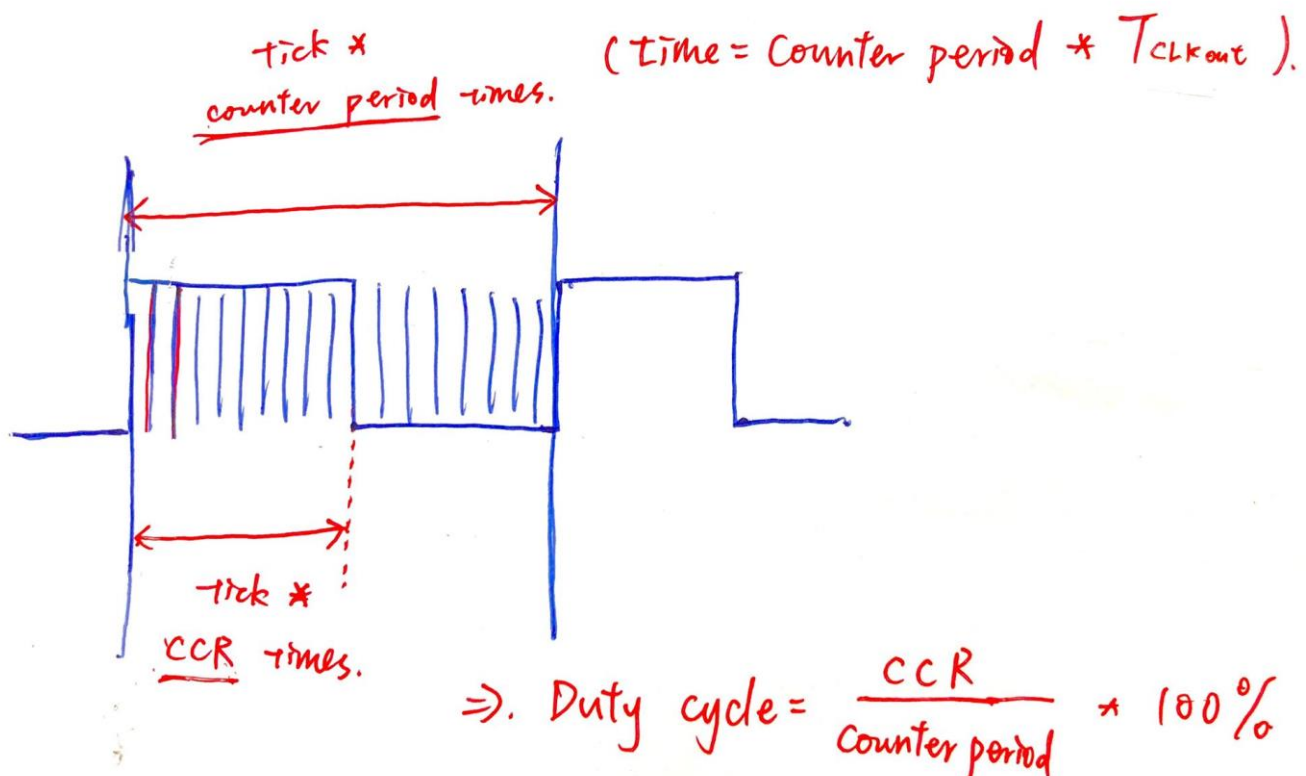 tick *
counter period times.
(time = Counter period * TCLKout ).
tick *
CCR times.
⇒. Duty cycle = CCR / Counter period * 100%